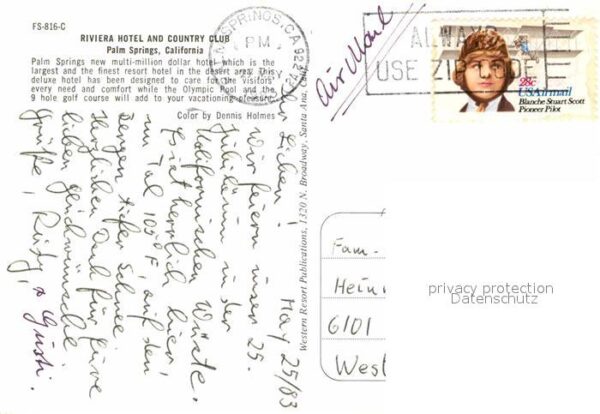 FS-816-C
RIVIERA HOTEL AND COUNTRY CLUB
Palm Springs, California
Palm Springs new multi-million dollar hotel which is the
largest and the finest resort hotel in the desert area. This
deluxe hotel has been designed to care for the visitors
every need and comfort while the Olympic Pool and the
9 hole golf course will add to your vacationing pleasure.
Color by Dennis Holmes
SPRINGS, CA 922
PM
Air Mail
ALWAYS
USE ZIP CODE
28c
USAirmail
Blanche Stuart Scott
Pioneer Pilot
Western Resort Publications, 1320 N. Broadway, Santa Ana, Cal
May 25/83
Ihr Lieben!
Wir feiern unser 25.
Jubiläum in der
Kalifornischen Wüste.
Es ist herrlich hier,
im Tal 105°F, auf den
Bergen tiefer Schnee.
Herzlichen Dank für Eure
lieben Glückwünsche
Grüße! Rudy & Gusti.
Fam.
Hein
6101
West
privacy protection
Datenschutz